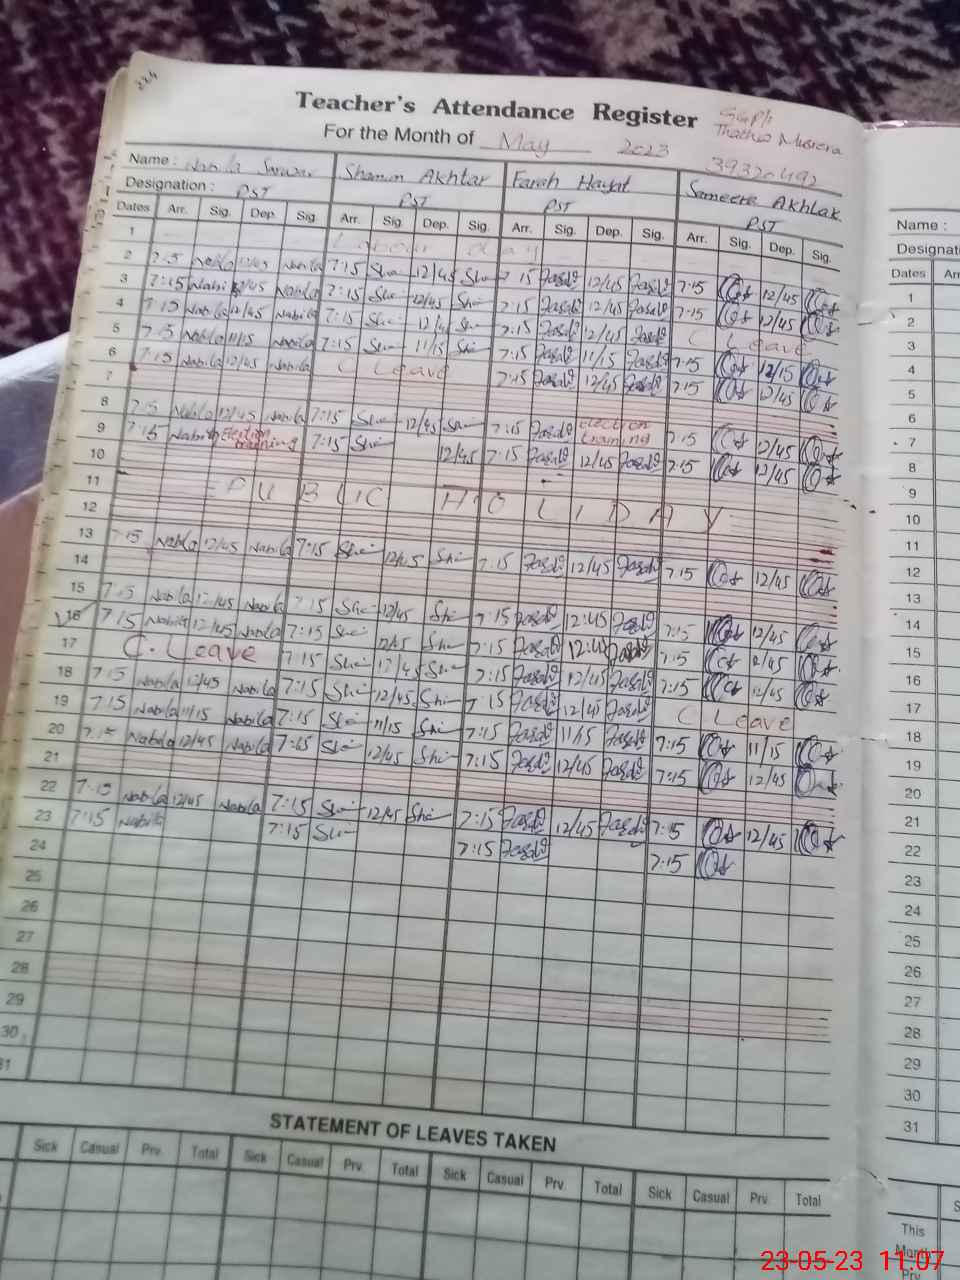 224
Teacher's Attendance Register
For the Month of May 2023
GGP/s
Thathea Musrera
39320492
Name : Nabila Sarwar Shamim Akhtar Farah Hayat Sameera Akhlak
Designation : PST PST PST PST
Dates Arr. Sig. Dep. Sig. Arr. Sig. Dep. Sig. Arr. Sig. Dep. Sig. Arr. Sig. Dep. Sig.
1 Labour day
2 7:15 Nabila 12/45 Nabila 7:15 Sha 12/45 Sha 7:15 12/45 7:15 12/45
3 7:15 Nabila 12/45 Nabila 7:15 Sha 12/45 Sha 7:15 12/45 7:15 12/45
4 7:15 Nabila 12/45 Nabila 7:15 Sha 12/45 Sha 7:15 12/45 C Leave
5 7:15 Nabila 11/15 Nabila 7:15 Sha 11/15 Sha 7:15 11/15 7:15 12/15
6 7:15 Nabila 12/45 Nabila C Leave 7:15 12/45 7:15 12/45
7
8 7:15 Nabila 12/45 Nabila 7:15 Sha 12/45 Sha 7:15 Election training 7:15 12/45
9 7:15 Nabila Election training 7:15 Sha 12/45 7:15 12/45 7:15 12/45
10
11 PUBLIC HOLIDAY
12
13 7:15 Nabila 12/45 Nabila 7:15 Sha 12/45 Sha 7:15 12/45 7:15 12/45
14
15 7:15 Nabila 12/45 Nabila 7:15 Sha 12/45 Sha 7:15 12:45 7:15 12/45
16 7:15 Nabila 12/45 Nabila 7:15 Sha 12/45 Sha 7:15 12:45 7:15 12/45
17 C. Leave 7:15 Sha 12/45 Sha 7:15 12/45 7:15 12/45
18 7:15 Nabila 12/45 Nabila 7:15 Sha 12/45 Sha 7:15 12/45 C Leave
19 7:15 Nabila 11/15 Nabila 7:15 Sha 11/15 Sha 7:15 11/15 7:15 11/15
20 7:15 Nabila 12/45 Nabila 7:15 Sha 12/45 Sha 7:15 12/45 7:15 12/45
21
22 7:15 Nabila 12/45 Nabila 7:15 Sha 12/45 Sha 7:15 12/45 7:15 12/45
23 7:15 Nabila 7:15 Sha 7:15 7:15
24
25
26
27
28
29
30
31
STATEMENT OF LEAVES TAKEN
Sick Casual Prv. Total Sick Casual Prv. Total Sick Casual Prv. Total Sick Casual Prv. Total
Name :
Designati
Dates Ar
1
2
3
4
5
6
7
8
9
10
11
12
13
14
15
16
17
18
19
20
21
22
23
24
25
26
27
28
29
30
31
S
This
Month
Prv.
23-05-23 11.07